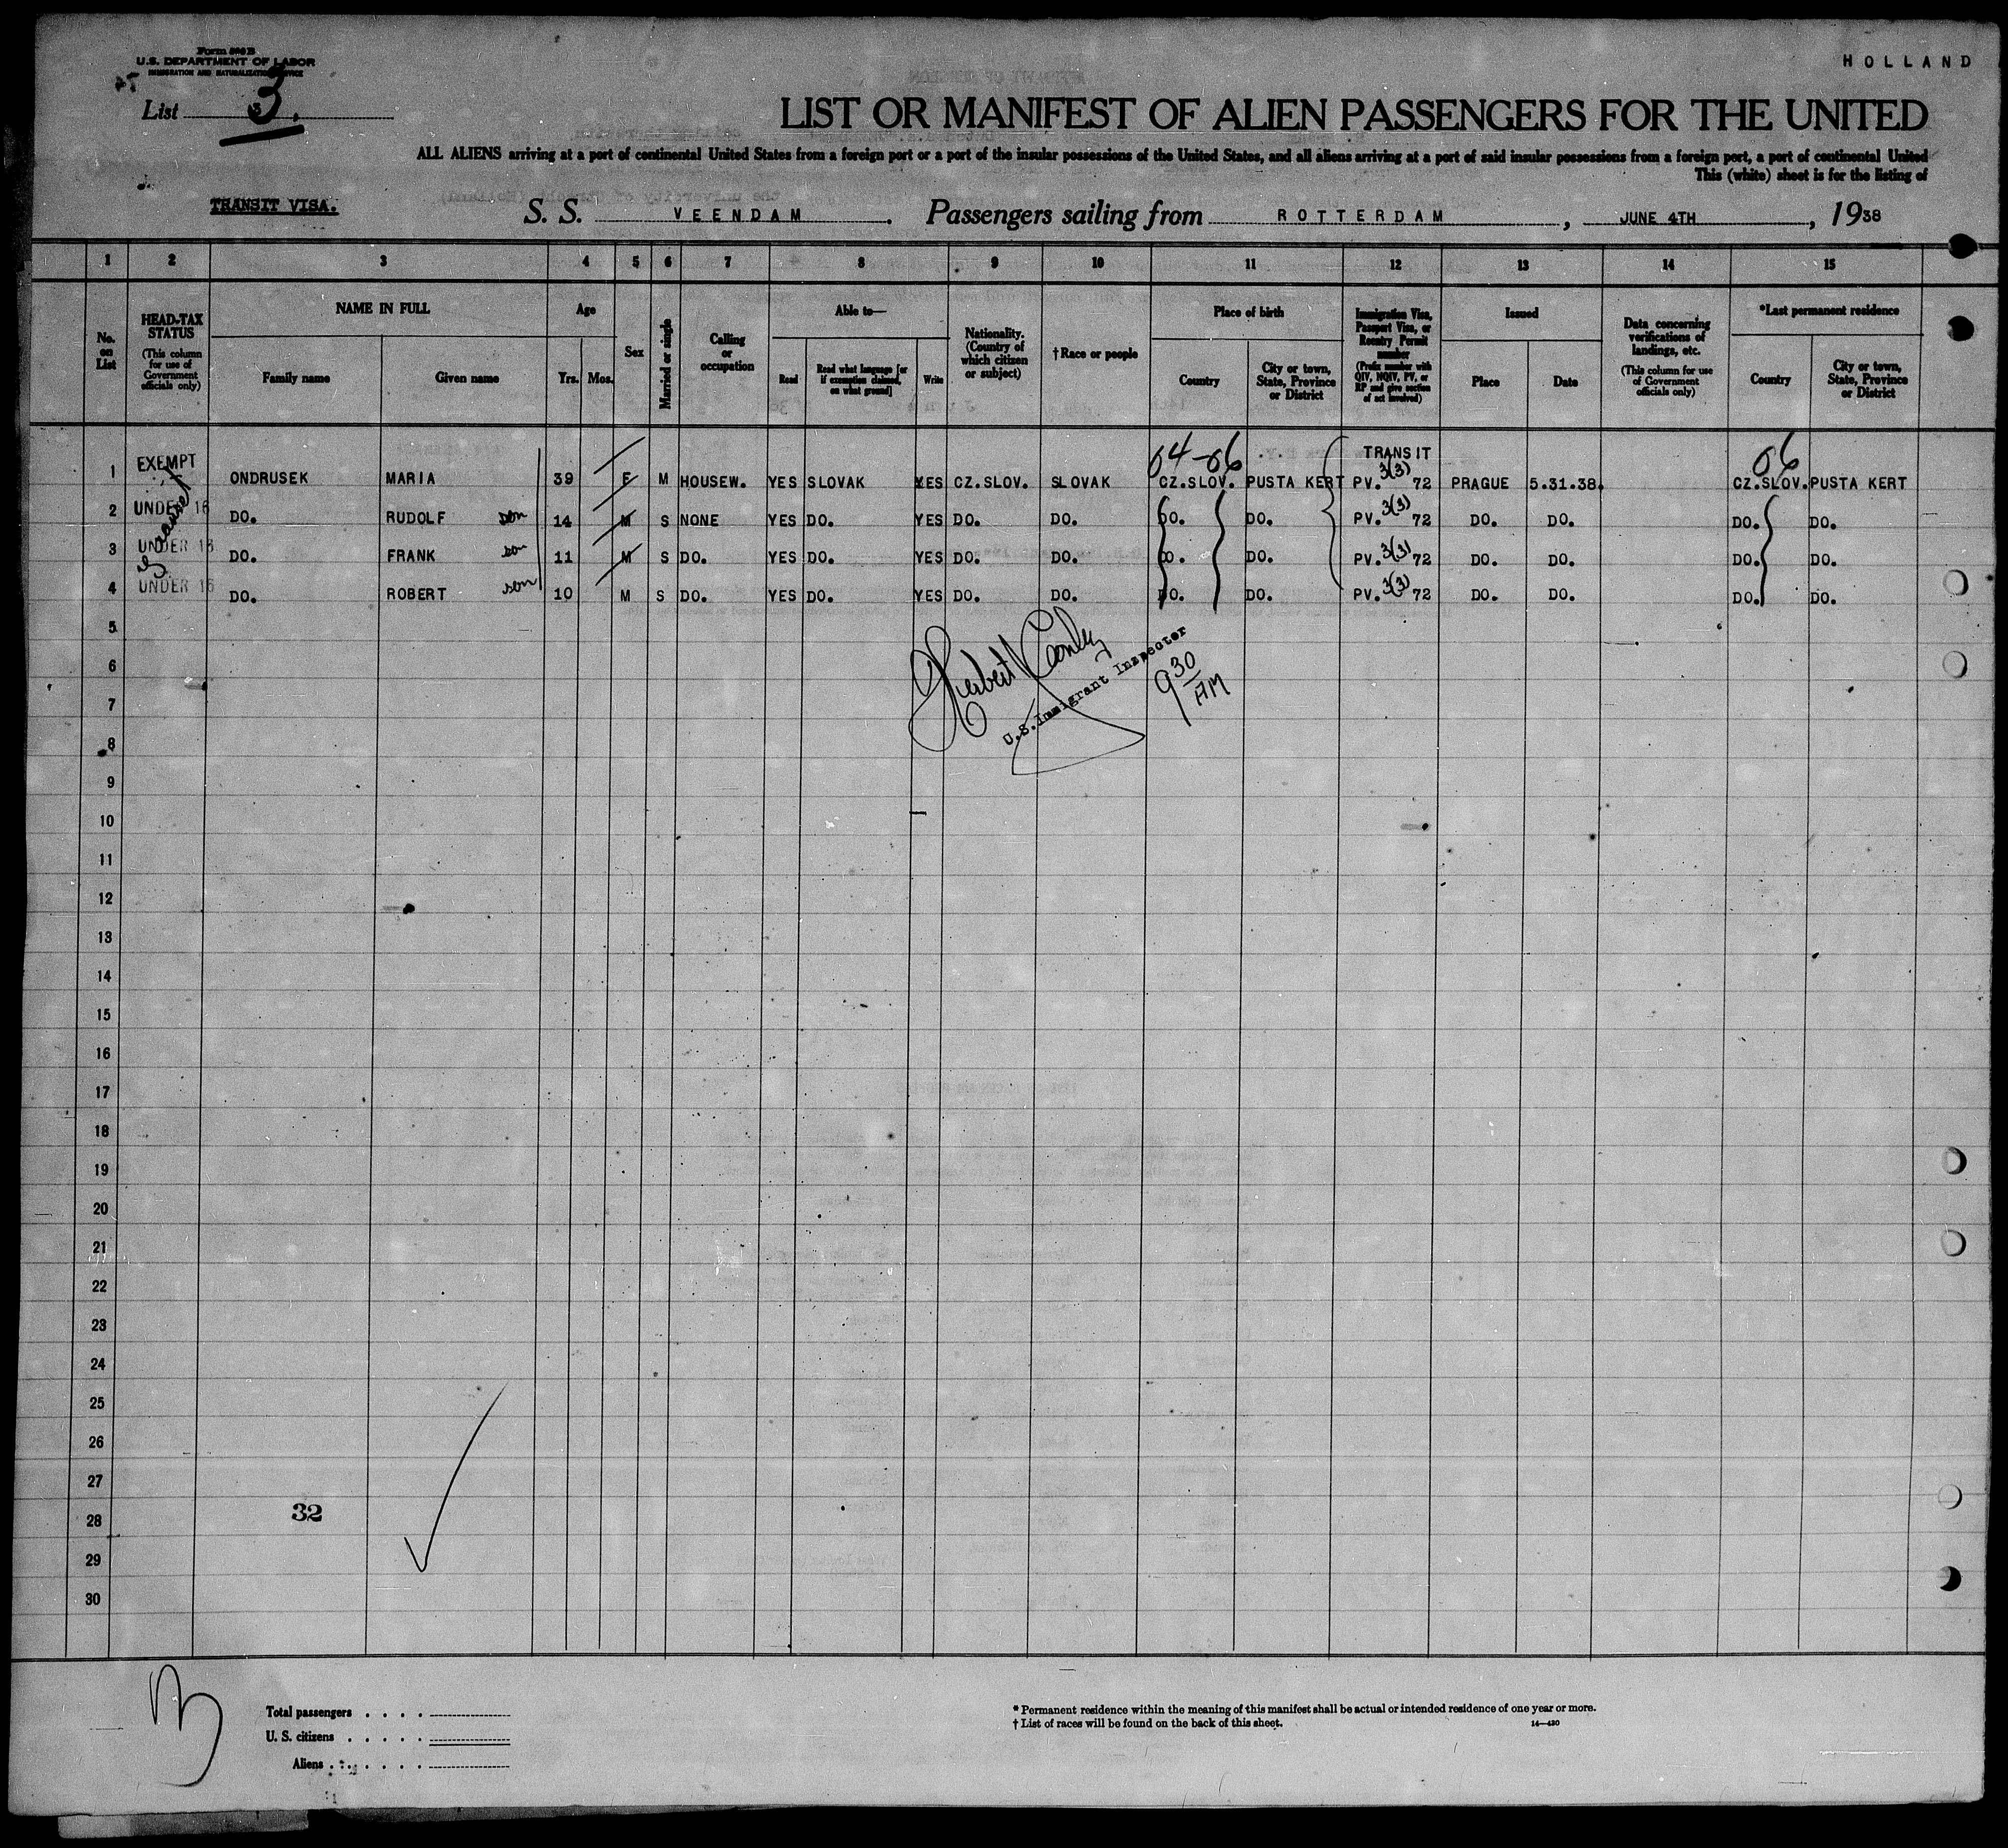 Form 500 B
U.S. DEPARTMENT OF LABOR
IMMIGRATION AND NATURALIZATION SERVICE
HOLLAND
List 3.
LIST OR MANIFEST OF ALIEN PASSENGERS FOR THE UNITED
ALL ALIENS arriving at a port of continental United States from a foreign port or a port of the insular possessions of the United States, and all aliens arriving at a port of said insular possessions from a foreign port, a port of continental United
This (white) sheet is for the listing of
TRANSIT VISA. S. S. VEENDAM. Passengers sailing from ROTTERDAM, JUNE 4TH, 1938
1 2 3 4 5 6 7 8 9 10 11 12 13 14 15
No. on List
HEAD-TAX STATUS (This column for use of Government officials only)
NAME IN FULL
Family name Given name
Age
Yrs. Mos.
Sex
Married or single
Calling or occupation
Able to—
Read Read what language [or if exemption claimed, on what ground] Write
Nationality. (Country of which citizen or subject)
†Race or people
Place of birth
Country City or town, State, Province or District
Immigration Visa, Passport Visa, or Reentry Permit number (Prefix number with QIV, NQIV, PV, or RP and give section of act involved)
Issued
Place Date
Data concerning verifications of landings, etc. (This column for use of Government officials only)
*Last permanent residence
Country City or town, State, Province or District
04-06 TRANSIT 06
1 EXEMPT ONDRUSEK MARIA 39 F M HOUSEW. YES SLOVAK YES CZ.SLOV. SLOVAK CZ.SLOV. PUSTA KERT PV. 3(3) 72 PRAGUE 5.31.38. CZ.SLOV. PUSTA KERT
2 UNDER 16 DO. RUDOLF son 14 M S NONE YES DO. YES DO. DO. DO. DO. PV. 3(3) 72 DO. DO. DO. DO.
3 UNDER 16 DO. FRANK son 11 M S DO. YES DO. YES DO. DO. DO. DO. PV. 3(3) 72 DO. DO. DO. DO.
4 UNDER 16 DO. ROBERT son 10 M S DO. YES DO. YES DO. DO. DO. DO. PV. 3(3) 72 DO. DO. DO. DO.
Transit
5
Herbert Conley
U.S. Immigrant Inspector
9 30 AM
6
7
8
9
10
11
12
13
14
15
16
17
18
19
20
21
22
23
24
25
26
27
32
28
29
30
Total passengers . . . .
U. S. citizens . . . . .
Aliens . . . . . .
* Permanent residence within the meaning of this manifest shall be actual or intended residence of one year or more.
† List of races will be found on the back of this sheet. 14—430